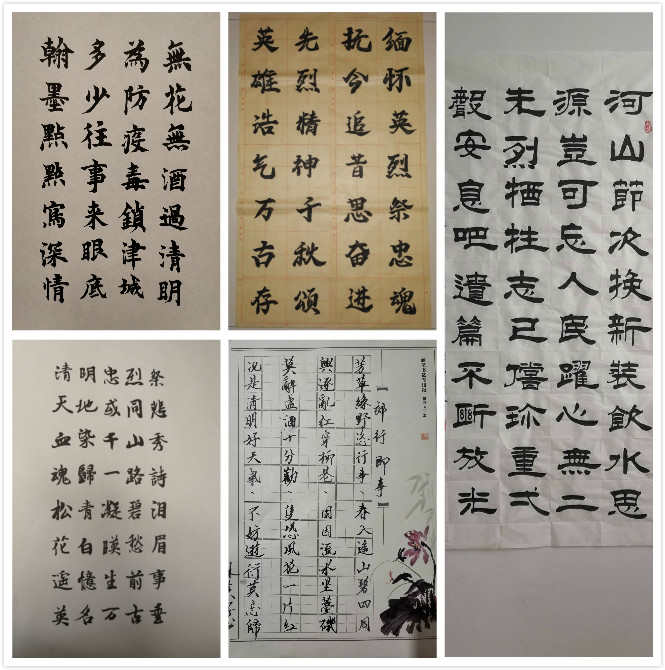 無花無酒過清明
為防疫毒鎖津城
多少往事来眼底
翰墨點點寫深情
缅怀英烈祭忠魂
抚今追昔思奋进
先烈精神千秋颂
英雄浩气万古存
河山節次换新装飲水思
源豈可忘人民躍心無二
未烈牺牲志已償珍重弍
安息吧遣篇不斷放光
祭悲秀詩泪眉事垂
烈同山路碧愁前古
忠或千一凝暎生万
明地染歸青白憶名
清天血魂松花遥英
『郊行即事』
芳草緑野恣行事、春入遥山碧四周
興逐亂红穿柳巷、困因流水坐苔磯
莫辭盏酒十分勸、隻恐風花一片红
况是清明好天氣、不妨遊衍莫忘歸